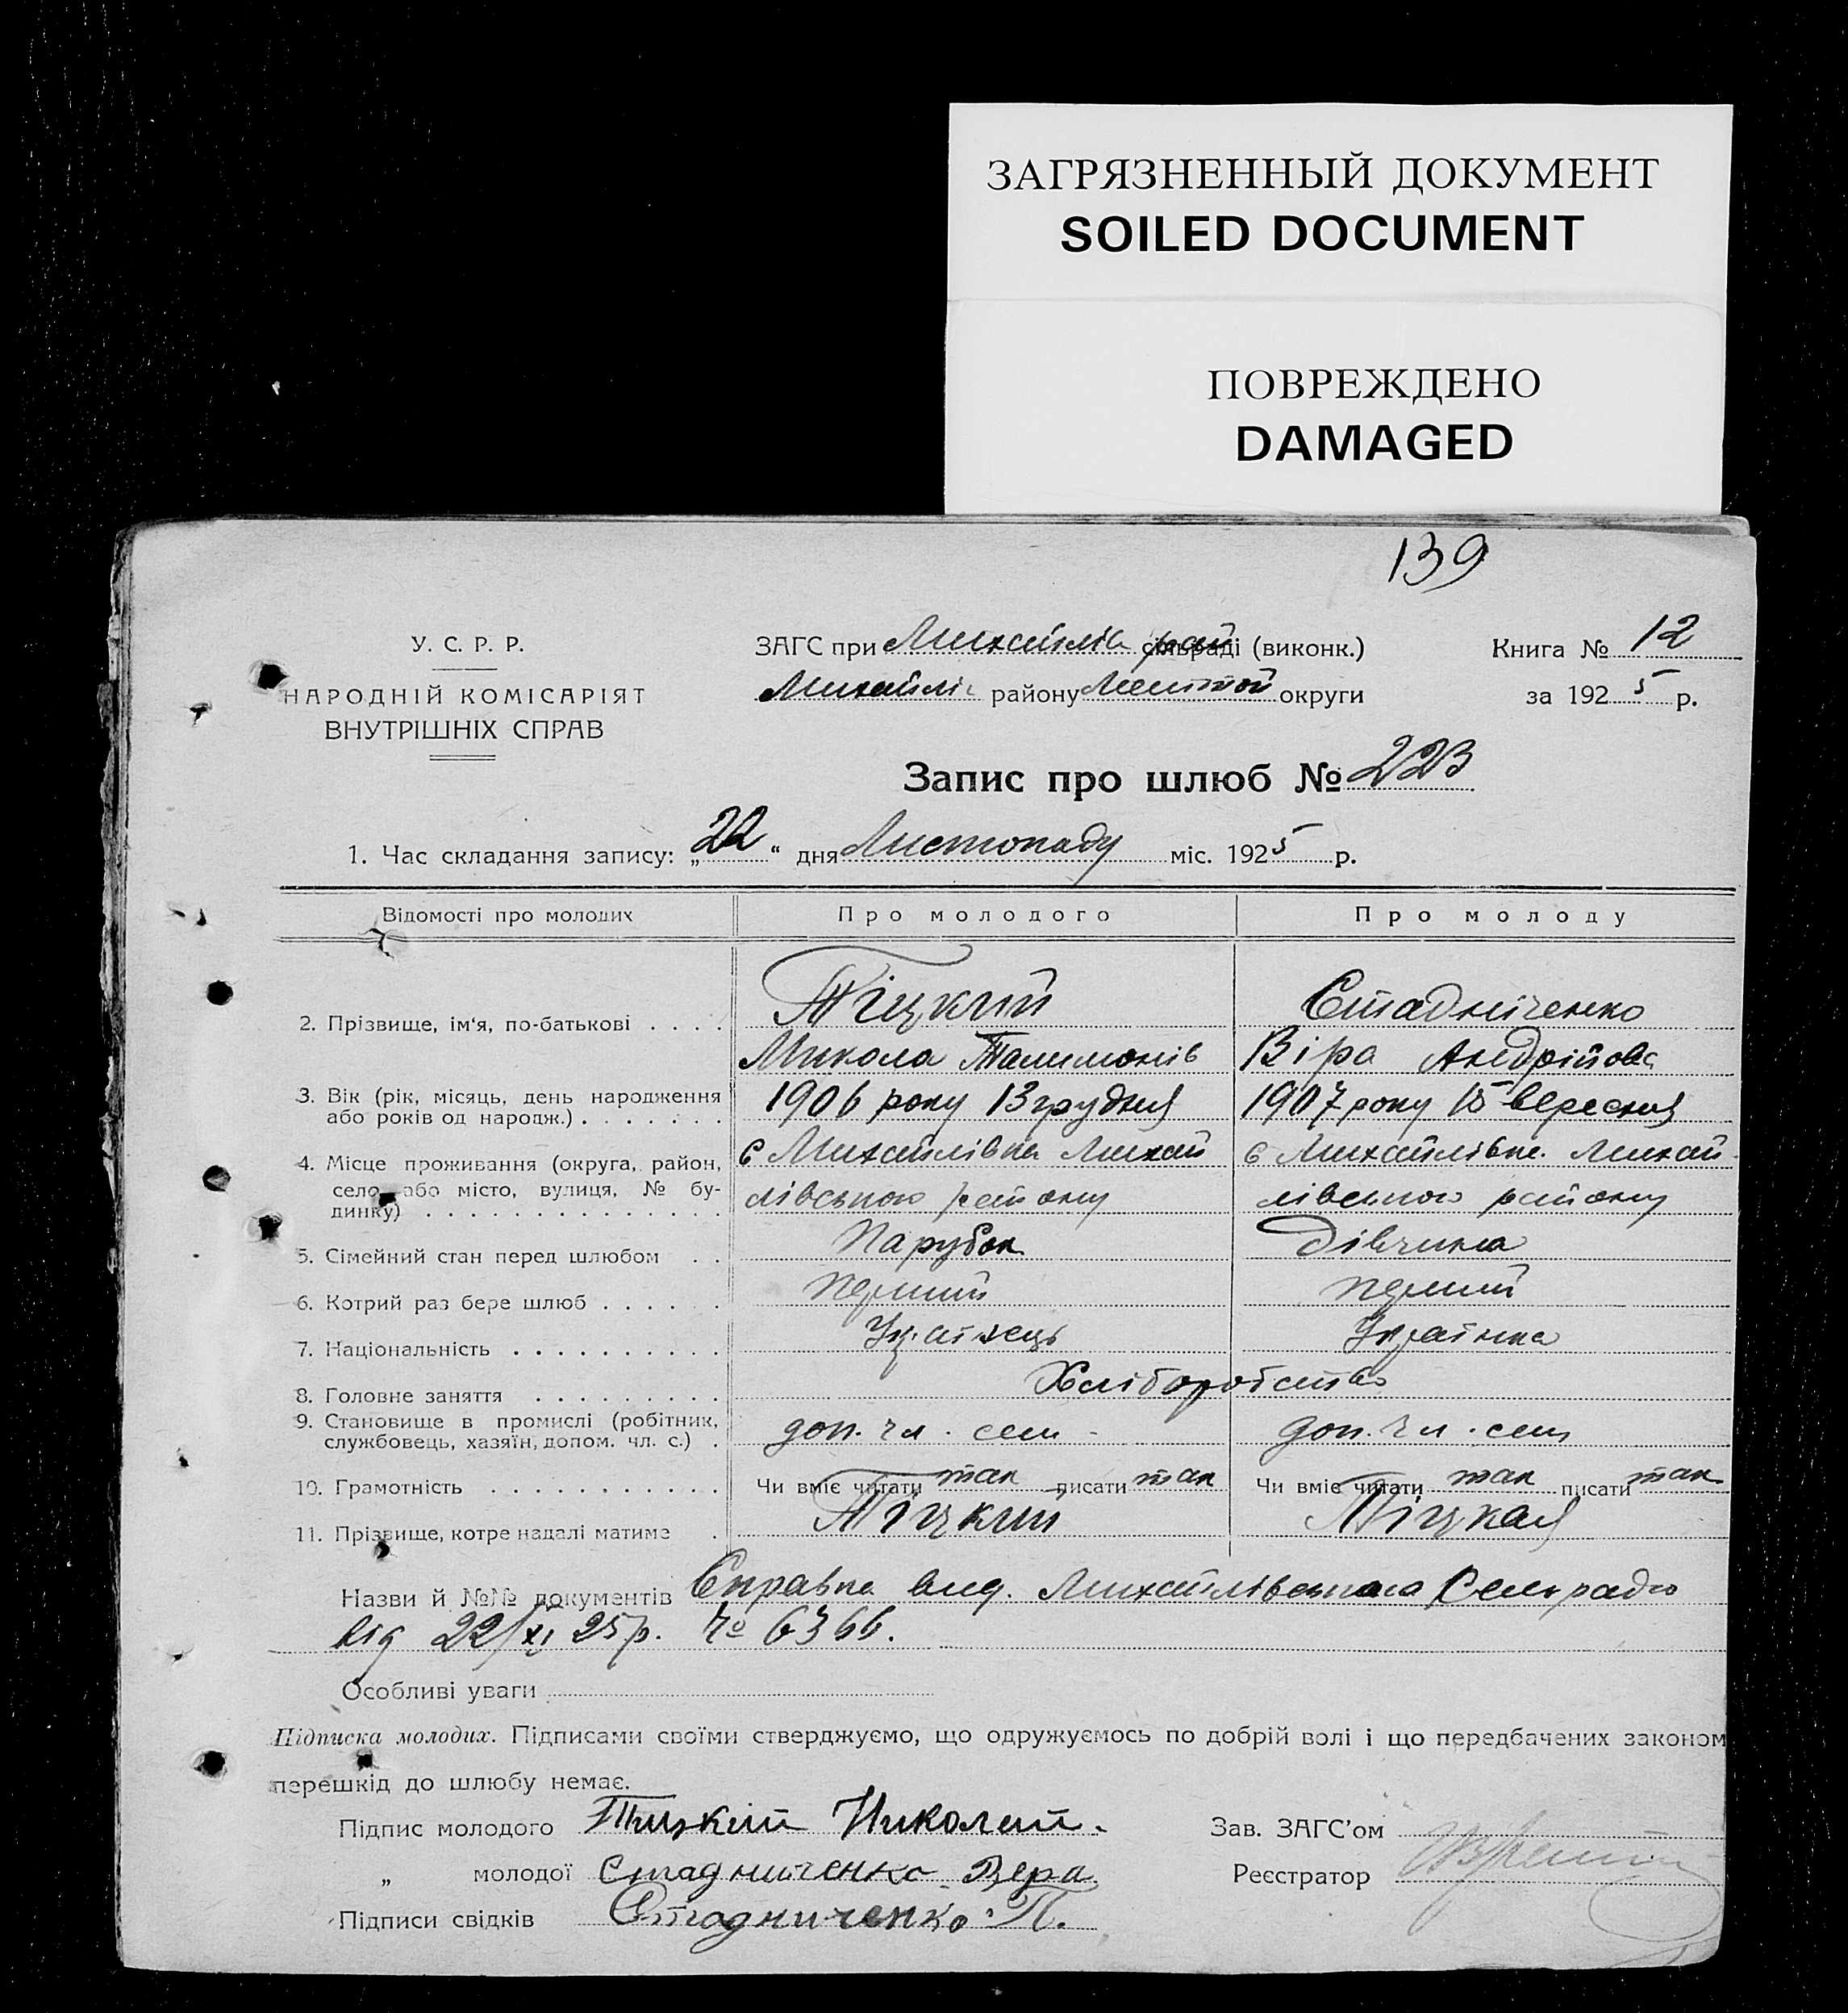 ЗАГРЯЗНЕННЫЙ ДОКУМЕНТ
SOILED DOCUMENT
ПОВРЕЖДЕНО
DAMAGED
139
У. С. Р. Р.
НАРОДНІЙ КОМІСАРІЯТ
ВНУТРІШНІХ СПРАВ
ЗАГС при Михайлів рай сільраді (виконк.)
Михайлів району округи
Книга № 12
за 1925 р.
Запис про шлюб № 223
1. Час складання запису: „22“ дня Листопаду міс. 1925 р.
Відомості про молодих
Про молодого
Про молоду
2. Прізвище, ім‘я, по-батькові . . . .
Тіцкий
Стадніченко
Микола Талимонів
Віра Андрійова
3. Вік (рік, місяць, день народження
або років од народж.) . . . . . . .
1906 року 13 грудня
1907 року 15 вересня
4. Місце проживання (округа, район,
село або місто, вулиця, № бу-
динку) . . . . . . . . . . . . . .
с Михайлівка Михай
лівського району
с Михайлівка Михай
лівського району
5. Сімейний стан перед шлюбом . .
Парубок
Дівчина
6. Котрий раз бере шлюб . . . . . .
перший
перший
7. Національність . . . . . . . . . .
Українець
Українка
8. Головне заняття . . . . . . . . .
Хліборобство
9. Становище в промислі (робітник,
службовець, хазяїн, допом. чл. с.) .
доп. чл. сем
доп. чл. сем
10. Грамотність . . . . . . . . . . .
Чи вміє читати так писати так
Чи вміє читати так писати так
11. Прізвище, котре надалі матиме .
Тіцкий
Тіцкая
Назви й №№ документів Справка вид. Михайлівською Сельрадою
від 22/XI 25р. № 6366.
Особливі уваги
Підписка молодих. Підписами своїми стверджуємо, що одружуємось по добрій волі і що передбачених законом
перешкід до шлюбу немає.
Підпис молодого Тицкий Николай.
„ молодої Стадниченко Вера
Підписи свідків Стадниченко П.
Зав. ЗАГС’ом
Реєстратор